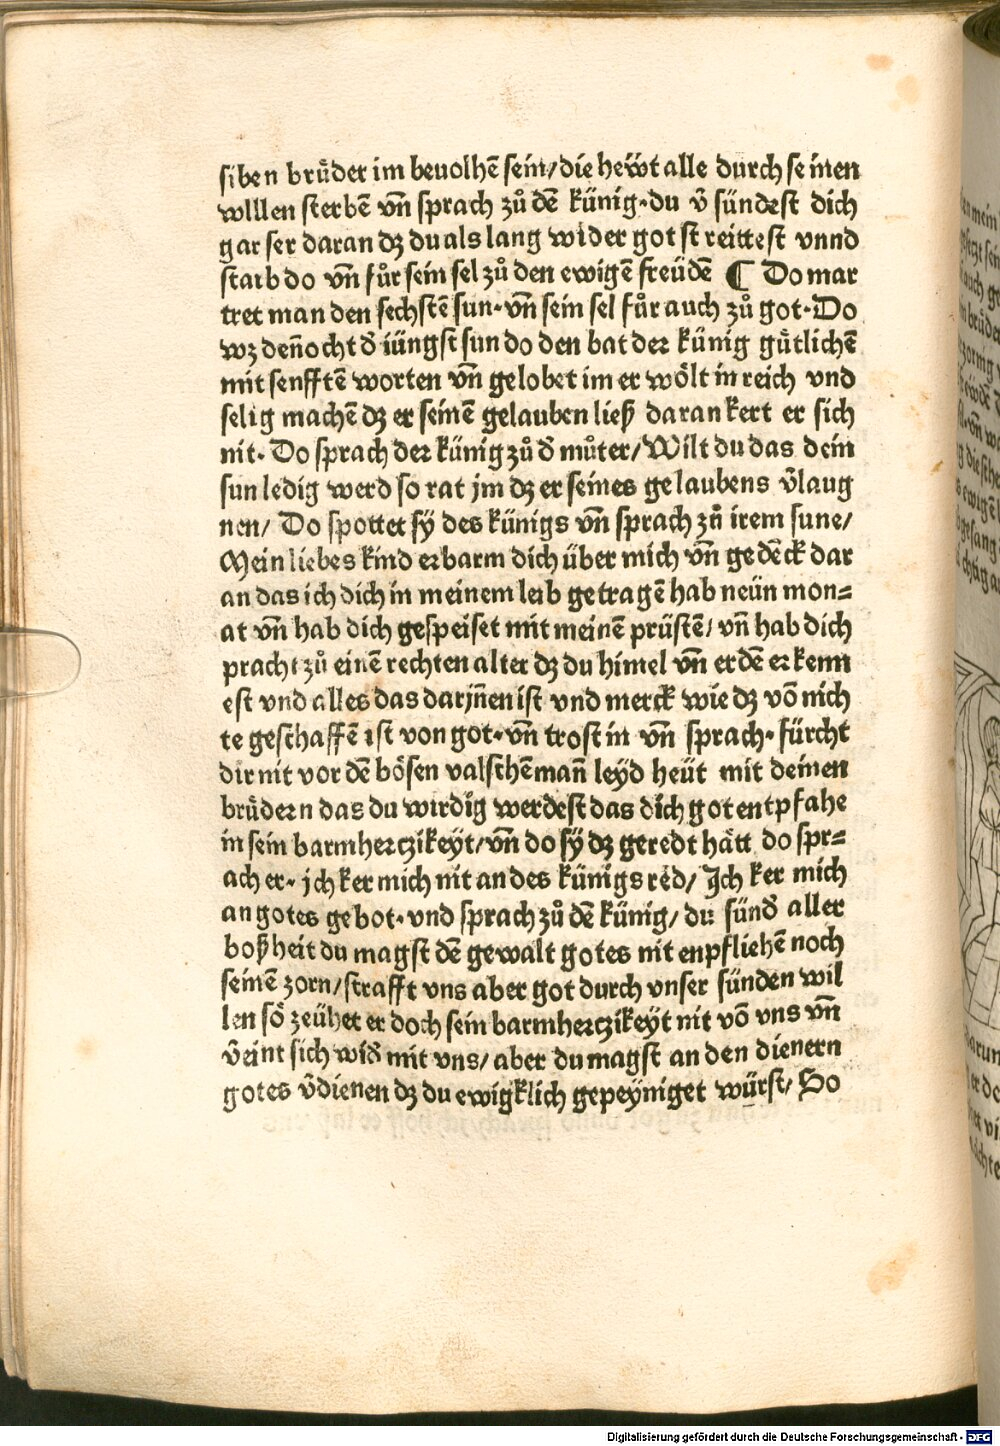 siben brůder im beuolhē sein/die hewt alle durch seinen
wlllen sterbē vn̄ sprach zů dē künig·du v̄ sündest dich
gar ser daran dz du als lang wider got streittest vnnd
starb do vn̄ fůr sein sel zů den ewigē freüdē ¶ Do mar
tret man den sechstē sun·vn̄ sein sel fůr auch zů got·Do
wz deñocht d̄ iüngst sun do den bat der künig gůtlichē
mit senfftē worten vn̄ gelobet im er wölt in reich vnd
selig machē dz er seinē gelauben ließ daran kert er sich
nit·Do sprach der künig zů d̄ můter/Wilt du das dein
sun ledig werd so rat jm dz er seines gelaubens v̄laug
nen/ Do spottet sÿ des künigs vn̄ sprach zů irem sune/
Mein liebes kind erbarm dich über mich vn̄ gedēck dar
an das ich dich in meinem leib getragē hab neün mon=
at vn̄ hab dich gespeiset mit meinē prüstē/ vn̄ hab dich
pracht zů einē rechten alter dz du himel vn̄ erdē erkenn
est vnd alles das darjñen ist vnd merck wie dz vō nich
te geschaffē ist von got·vn̄ trost in vn̄ sprach·fürcht
dir nit vor dē bösen valschēmañ leyd heüt mit deinen
brůdern das du wirdig werdest das dich got entpfahe
in sein barmherczikeÿt/vn̄ do sÿ dz geredt hätt do spr=
ach er·jch ker mich nit an des künigs red/ Jch ker mich
an gotes gebot·vnd sprach zů dē künig/ du sünd̄ aller
boßheit du magst dē gewalt gotes nit enpfliehē noch
seinē zorn/strafft vns aber got durch vnser sünden wil
len sō zeühet er doch sein barmherczikeÿt nit vō vns vn̄
v̄eint sich wid̄ mit vns/ aber du magst an den dienern
gotes v̄dienen dz du ewigklich gepeyniget würst/ So
Digitalisierung gefördert durch die Deutsche Forschungsgemeinschaft - DFG